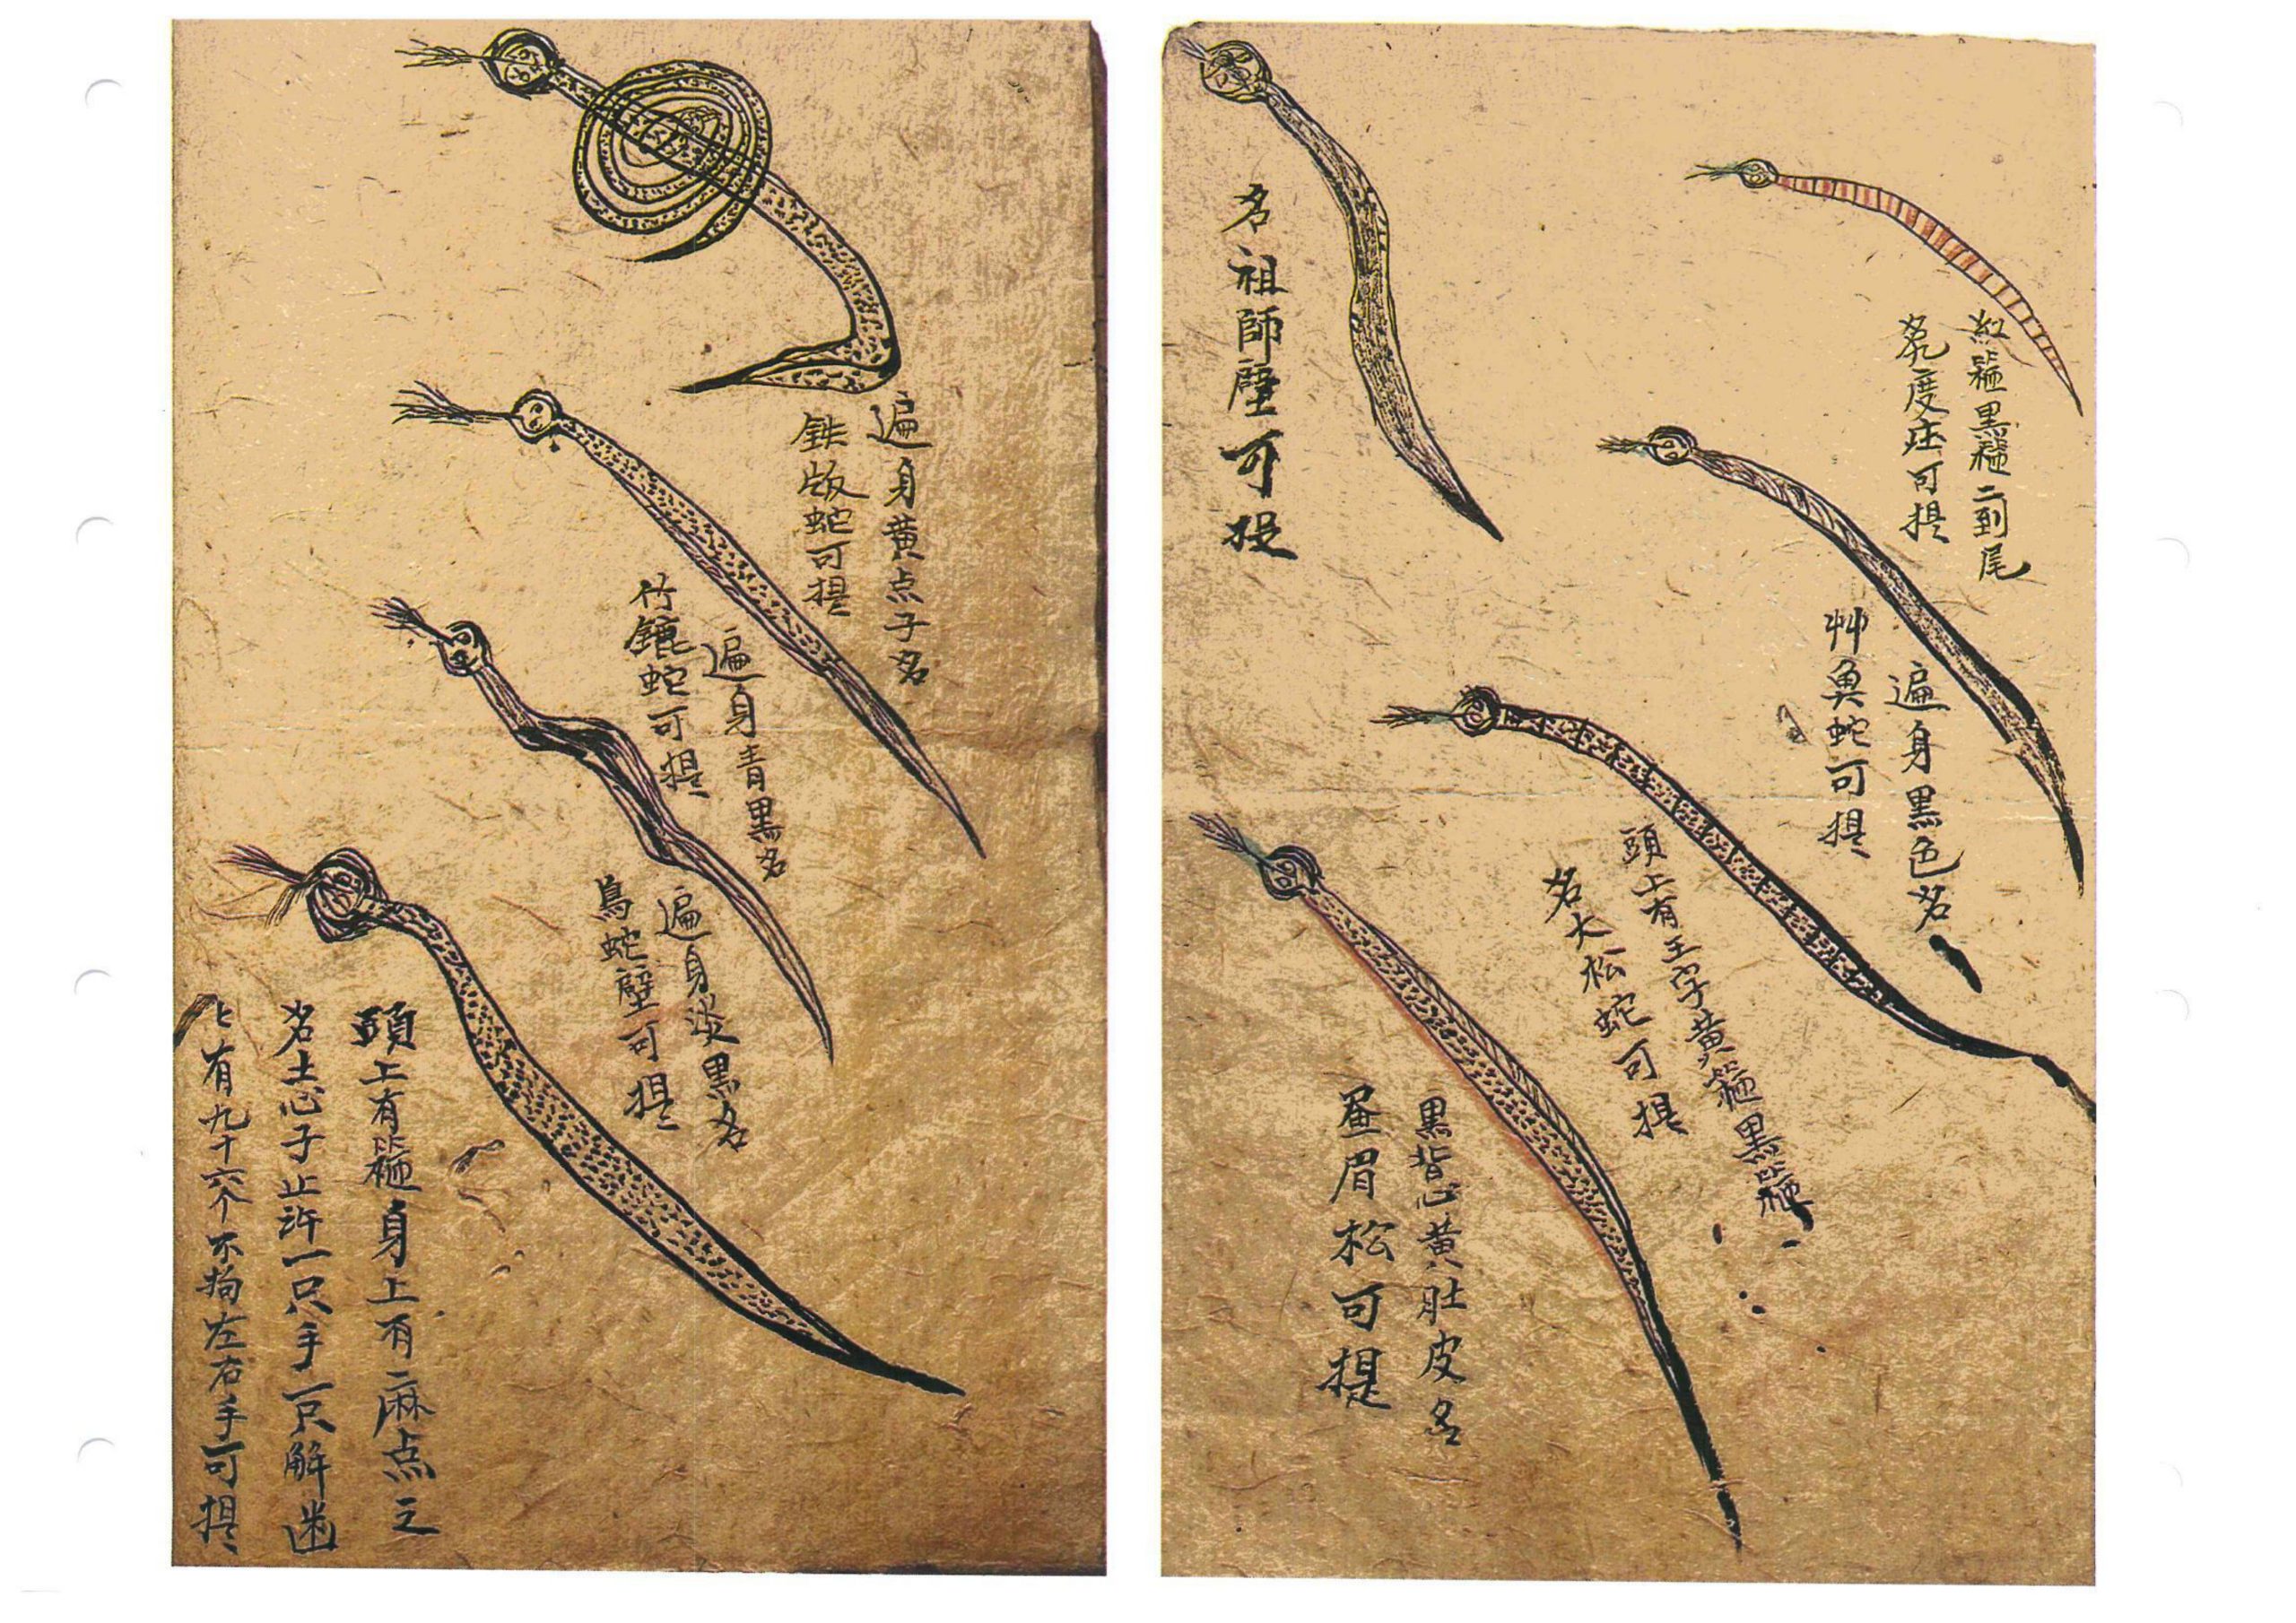 紅箍黑箍二到尾
名度庄可提
遍身黑色名
艸魚蛇可提
頭上有王字黄箍黑箍
名大松蛇可提
黑背心黄肚皮名
眉松可提
名祖師壁可提
遍身黄点子名
鉄版蛇可提
遍身青黑名
竹蛇可提
遍身淡黑名
烏蛇壁可提
頭上有箍身上有麻点之
名土恐子止許一只手一只解
上有九十六个不拘左右手可提